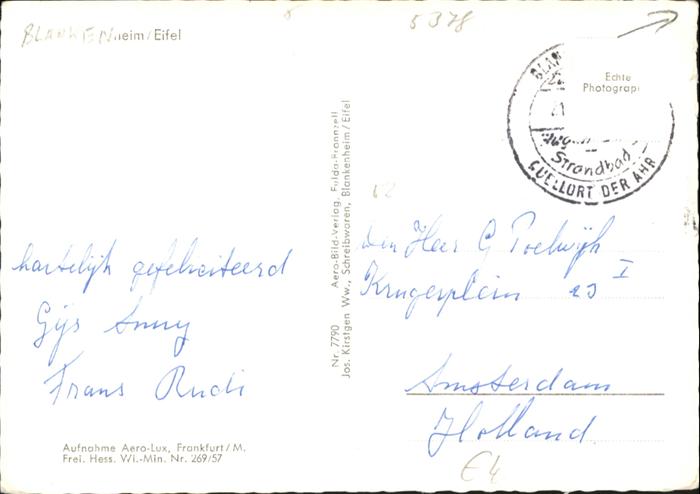 5378
BLANKENheim/Eifel
Echte
Photograp
BLAN
Strandbad
QUELLORT DER AHR
hartelijk gefeliciteerd
Gijs Anny
Frans Rudi
Aufnahme Aero-Lux, Frankfurt/M.
Frei. Hess. Wi.-Min. Nr. 269/57
Nr. 7790 Aero-Bild-Verlag, Fulda-Bronnzell
Jos. Kirstgen Ww., Schreibwaren, Blankenheim/Eifel
den Heer G Poelwijk
Krugerplein 23 I
Amsterdam
Holland.
€4